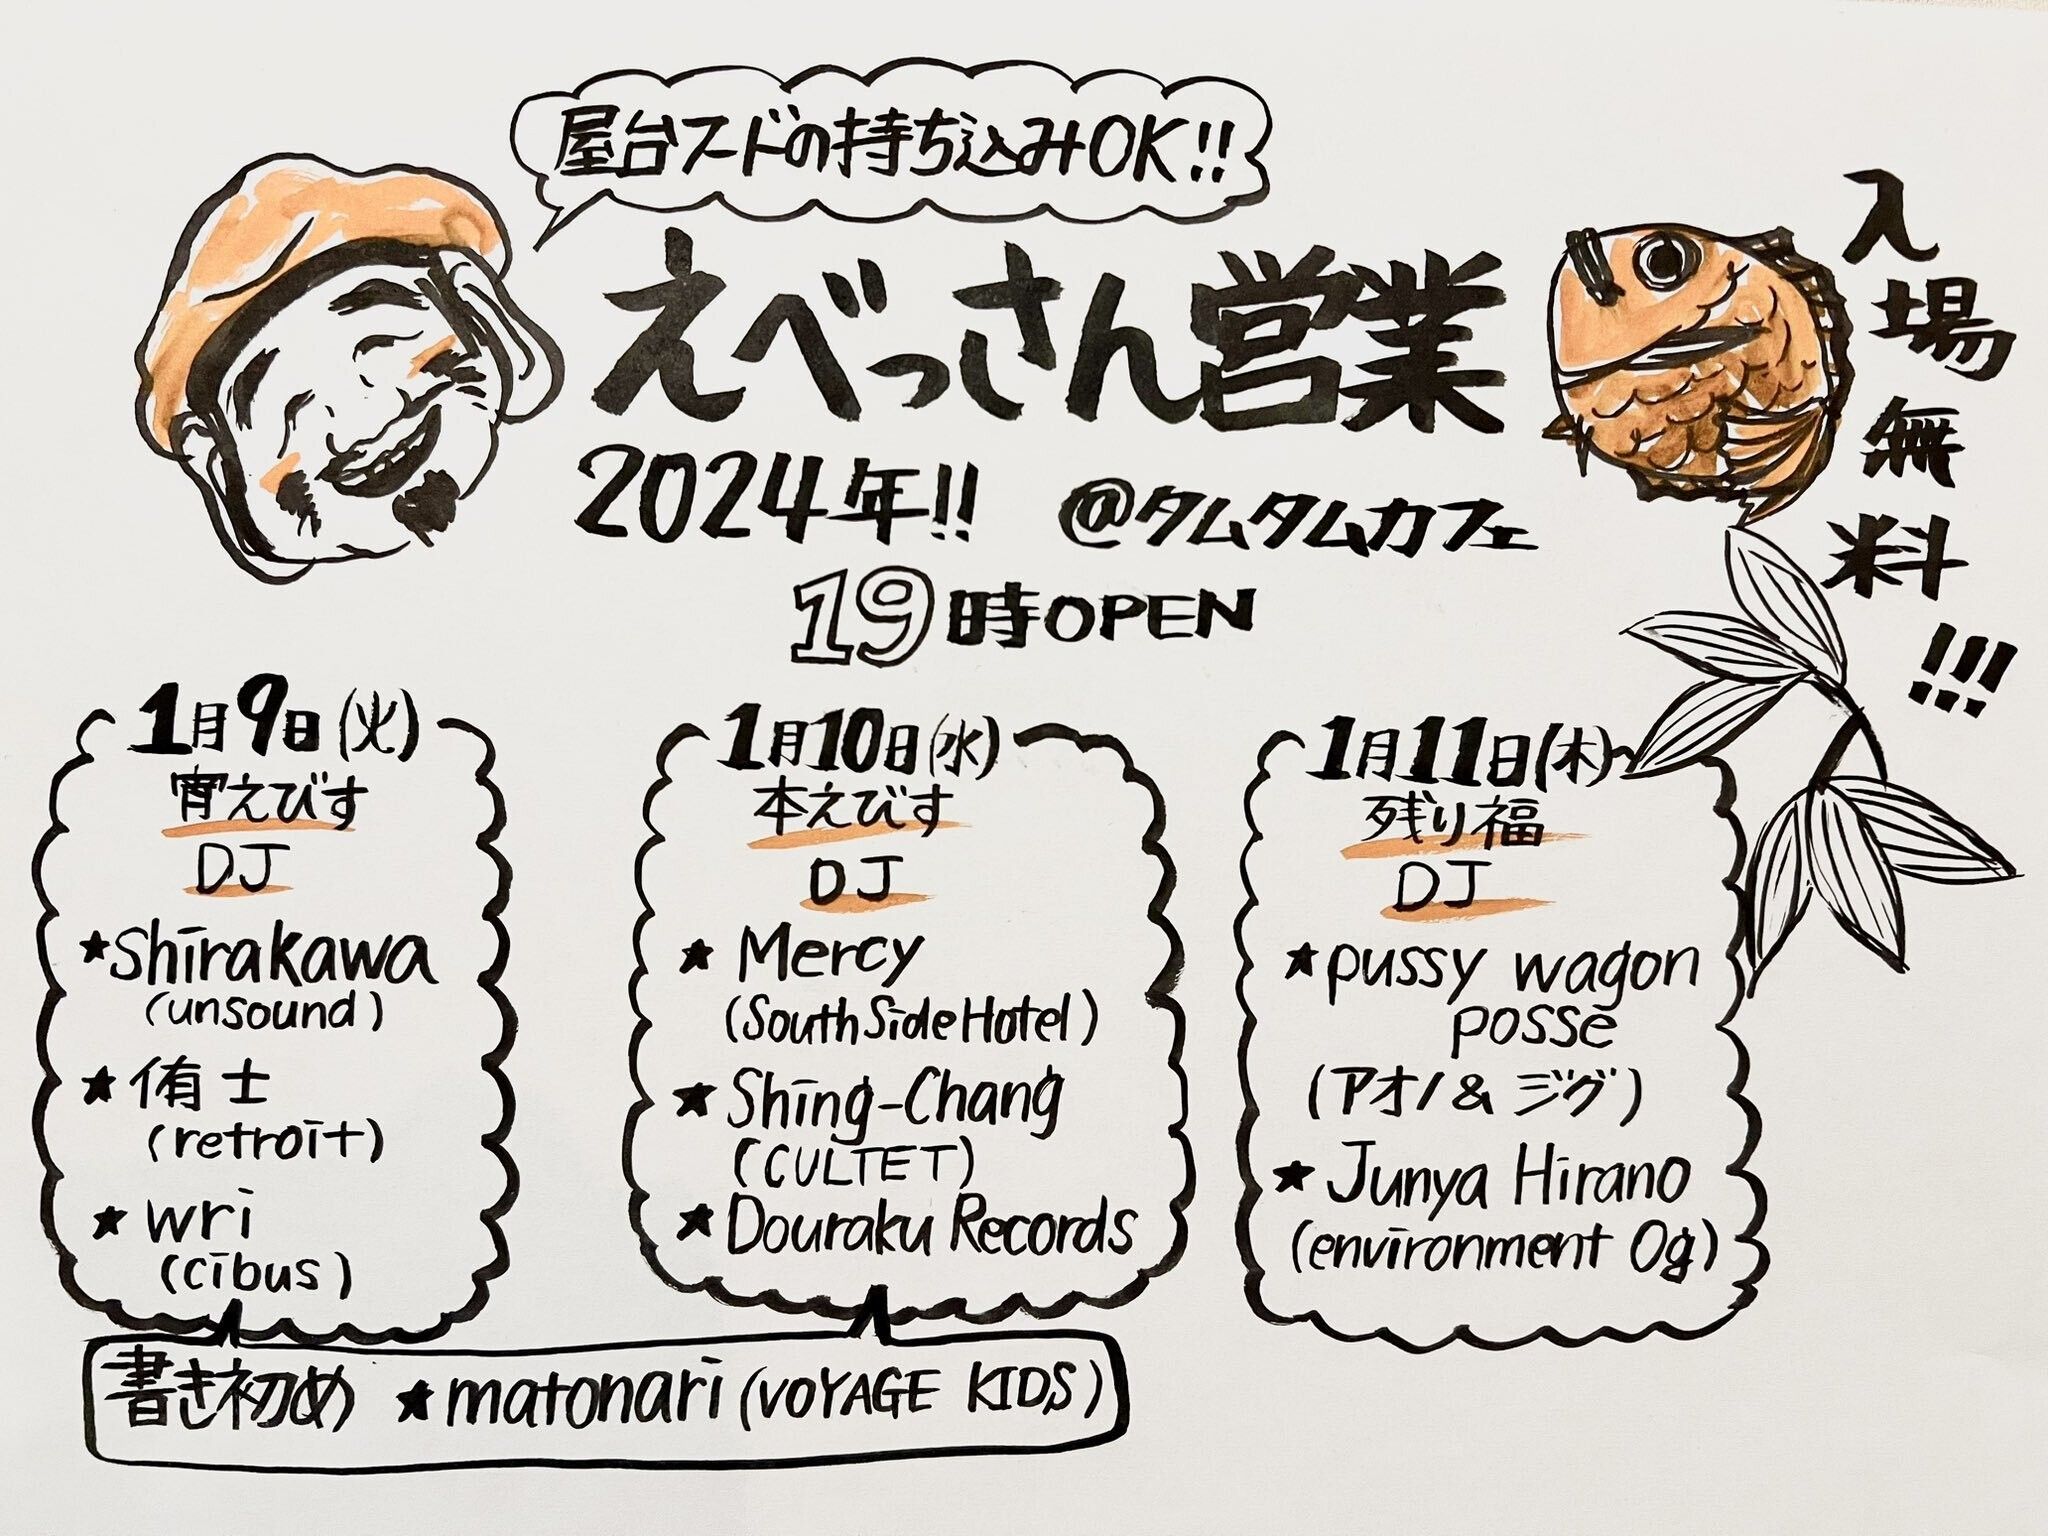 屋台フードの持ち込みOK!!
えべっさん営業
2024年!! @タムタムカフェ
19時OPEN
入場無料!!!
1月9日(火)
宵えびす
DJ
★Shirakawa
(unsound)
★侑士
(retroit)
★wri
(cibus)
1月10日(水)
本えびす
DJ
★Mercy
(SouthSideHotel)
★Shing-Chang
(CULTET)
★Douraku Records
1月11日(木)
残り福
DJ
★pussy wagon
posse
(アオノ&ジグ)
★Junya Hirano
(environment Og)
書き初め ★matonari (VOYAGE KIDS)